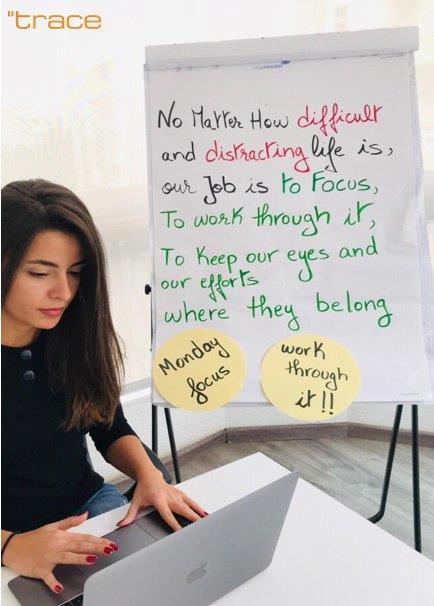 "trace
Legamaster
No Matter How difficult
and distracting life is,
our Job is to Focus,
To work through it,
To Keep our eyes and
our efforts
where they belong
Monday
focus
work
through
it!!